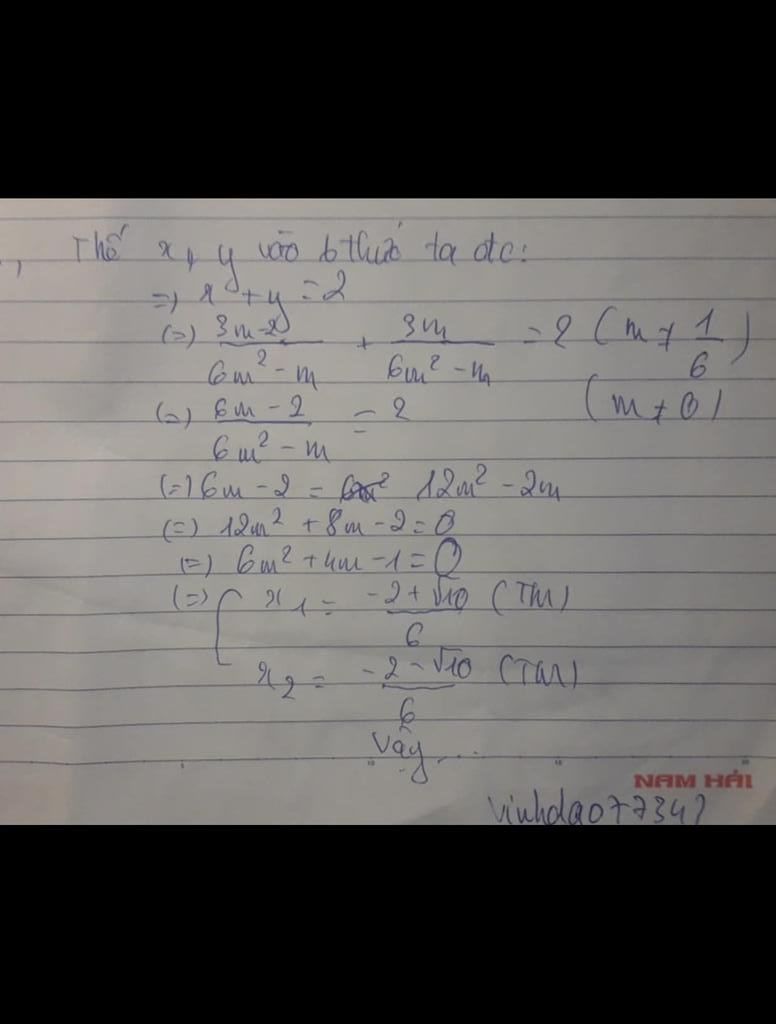 , Thế x, y vào b thức ta đc:
=) x + y = 2
(=) \frac{3m-2}{6m^2-m} + \frac{3m}{6m^2-m} = 2 (m ≠ \frac{1}{6})
(=) \frac{6m-2}{6m^2-m} = 2 (m ≠ 0)
(=) 6m - 2 = 12m^2 - 2m
(=) 12m^2 + 8m - 2 = 0
(=) 6m^2 + 4m - 1 = 0
(=) [ x_1 = \frac{-2+√10}{6} (TM)
x_2 = \frac{-2-√10}{6} (TM)
Vậy....
NAM HẢI
vinhdao77347